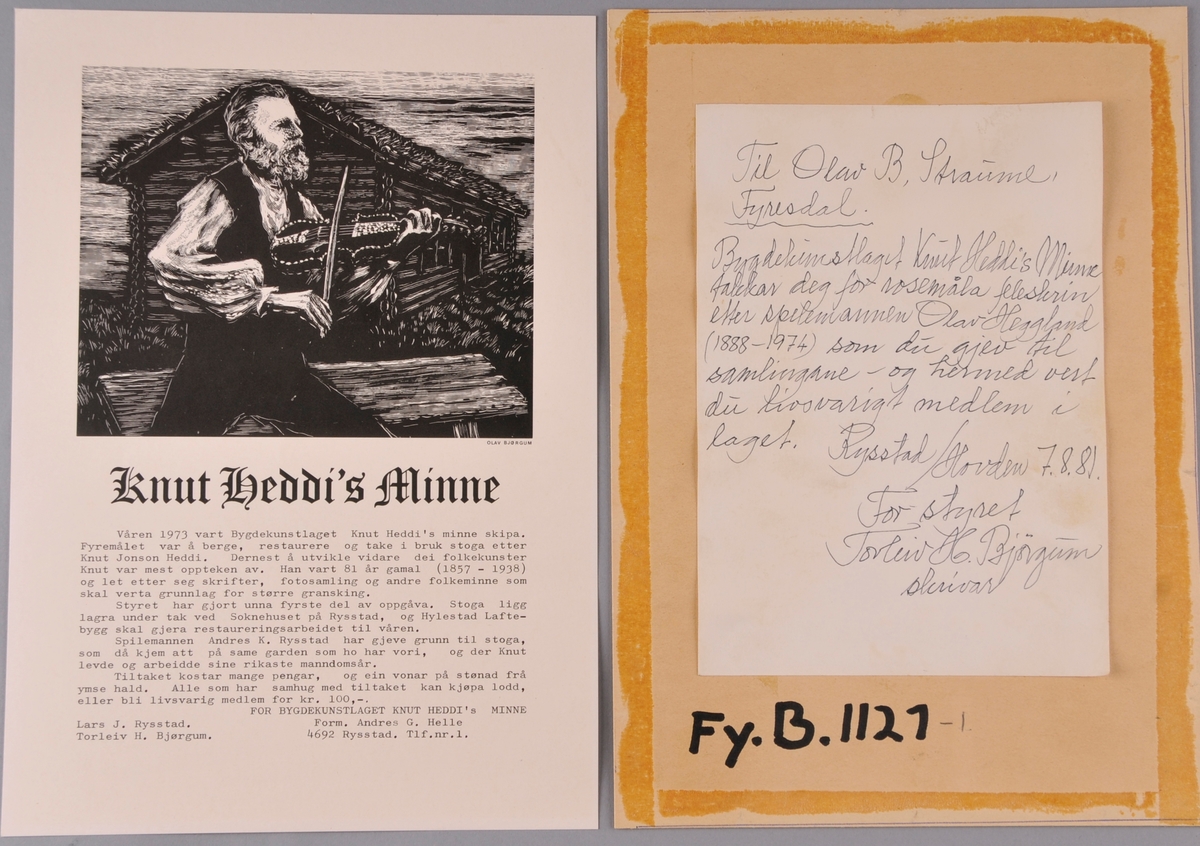 OLAV BJØRGUM
Knut Heddi's Minne
Våren 1973 vart Bygdekunstlaget Knut Heddi's minne skipa.
Fyremålet var å berge, restaurere og take i bruk stoga etter
Knut Jonson Heddi. Dernest å utvikle vidare dei folkekunster
Knut var mest oppteken av. Han vart 81 år gamal (1857 - 1938)
og let etter seg skrifter, fotosamling og andre folkeminne som
skal verta grunnlag for større gransking.
Styret har gjort unna fyrste del av oppgåva. Stoga ligg
lagra under tak ved Soknehuset på Rysstad, og Hylestad Lafte-
bygg skal gjera restaureringsarbeidet til våren.
Spilemannen Andres K. Rysstad har gjeve grunn til stoga,
som då kjem att på same garden som ho har vori, og der Knut
levde og arbeidde sine rikaste manndomsår.
Tiltaket kostar mange pengar, og ein vonar på stønad frå
ymse hald. Alle som har samhug med tiltaket kan kjøpa lodd,
eller bli livsvarig medlem for kr. 100,-.
FOR BYGDEKUNSTLAGET KNUT HEDDI's MINNE
Lars J. Rysstad. Form. Andres G. Helle
Torleiv H. Bjørgum. 4692 Rysstad. Tlf.nr.1.
Til Olav B. Straume,
Fyresdal.
Bygdekunstlaget Knut Heddi's Minne
takkar deg for rosemåla feleskrin
etter spelemannen Olav Heggland
(1888-1974) som du gjev til
samlingane - og hermed vert
du livsvarigt medlem i
laget. Rysstad/Hovden 7.8.81.
For styret
Torleiv H. Bjørgum
skrivar
Fy.B.1127-1.